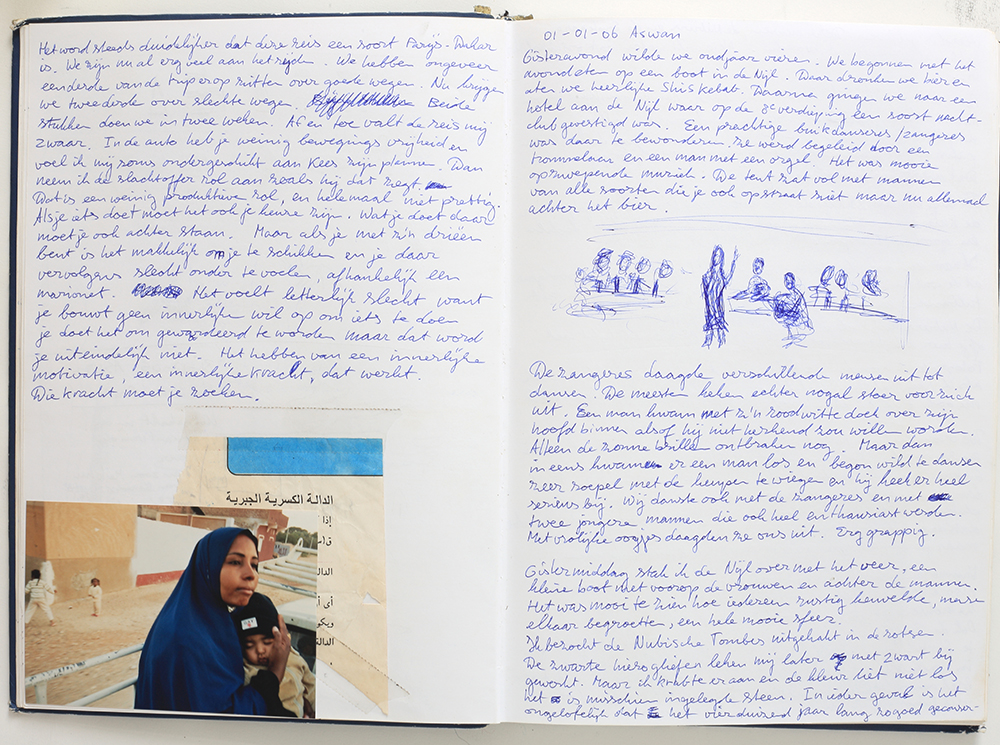 Het word steeds duidelijker dat deze reis een soort Parijs-Dakar
is. We zijn nu al erg veel aan het rijden. We hebben ongeveer
eenderde van de trip erop zitten over goede wegen. Nu krijgen
we tweederde over slechte wegen. Beide
stukken doen we in twee weken. Af en toe valt de reis mij
zwaar. In de auto heb je weinig bewegings vrijheid en
voel ik mij soms ondergeschikt aan Kees zijn plannen. Dan
neem ik de slachtoffer rol aan zoals hij dat zegt.
Dat is een weinig produktieve rol, en helemaal niet prettig.
Als je iets doet moet het ook je keuze zijn. Wat je doet daar
moet je ook achter staan. Maar als je met z'n drieën
bent is het makkelijk om je te schikken en je daar
vervolgens slecht onder te voelen, afhankelijk een
marionet. Het voelt letterlijk slecht want
je bouwt geen innerlijke wil op om iets te doen
je doet het om gewaardeerd te worden maar dat word
je uiteindelijk niet. Het hebben van een innerlijke
motivatie, een innerlijke kracht, dat werkt.
Die kracht moet je zoeken.
الدالة الكسرية الجبرية
إذا
أي أ
ويكو
الدالة
01-01-06 Aswan
Gisteravond wilde we oudjaar vieren. We begonnen met het
avondeten op een boot in de Nijl. Daar dronken we bier en
aten we heerlijke Shis kebab. Daarna gingen we naar een
hotel aan de Nijl waar op de 8e verdieping een soort nacht-
club gevestigd was. Een prachtige buikdanseres/zangeres
was daar te bewonderen. Ze werd begeleid door een
trommelaar en een man met een orgel. Het was mooie
opzwepende muziek. De tent zat vol met mannen
van alle soorten die je ook op straat ziet maar nu allemaal
achter het bier.
De zangeres daagde verschillende mensen uit tot
dansen. De meesten keken echter nogal stoer voor zich
uit. Een man kwam met z'n rood witte doek over zijn
hoofd binnen alsof hij niet herkend zou willen worden.
Alleen de zonne brillen ontbraken nog. Maar dan
in eens kwam er een man los en begon wild te dansen
zeer soepel met de heupen te wiegen en hij keek er heel
serieus bij. Wij danste ook met de zangeres en met
twee jongere mannen die ook heel enthousiast werden.
Met vrolijke oogjes daagden ze ons uit. Erg grappig.
Gistermiddag stak ik de Nijl over met het veer, een
kleine boot met voorop de vrouwen en achter de mannen.
Het was mooi te zien hoe iedereen rustig keuvelde, mensen
elkaar begroetten, een hele mooie sfeer.
Ik bezocht de Nubische Tombes uitgehakt in de rotsen.
De zwarte hierogliefen leken mij later met zwart bij
gewerkt. Maar ik krabte er aan en de kleur liet niet los
het is misschien ingelegde steen. In ieder geval is het
ongelofelijk dat het vierduizend jaar lang zo goed geconser-